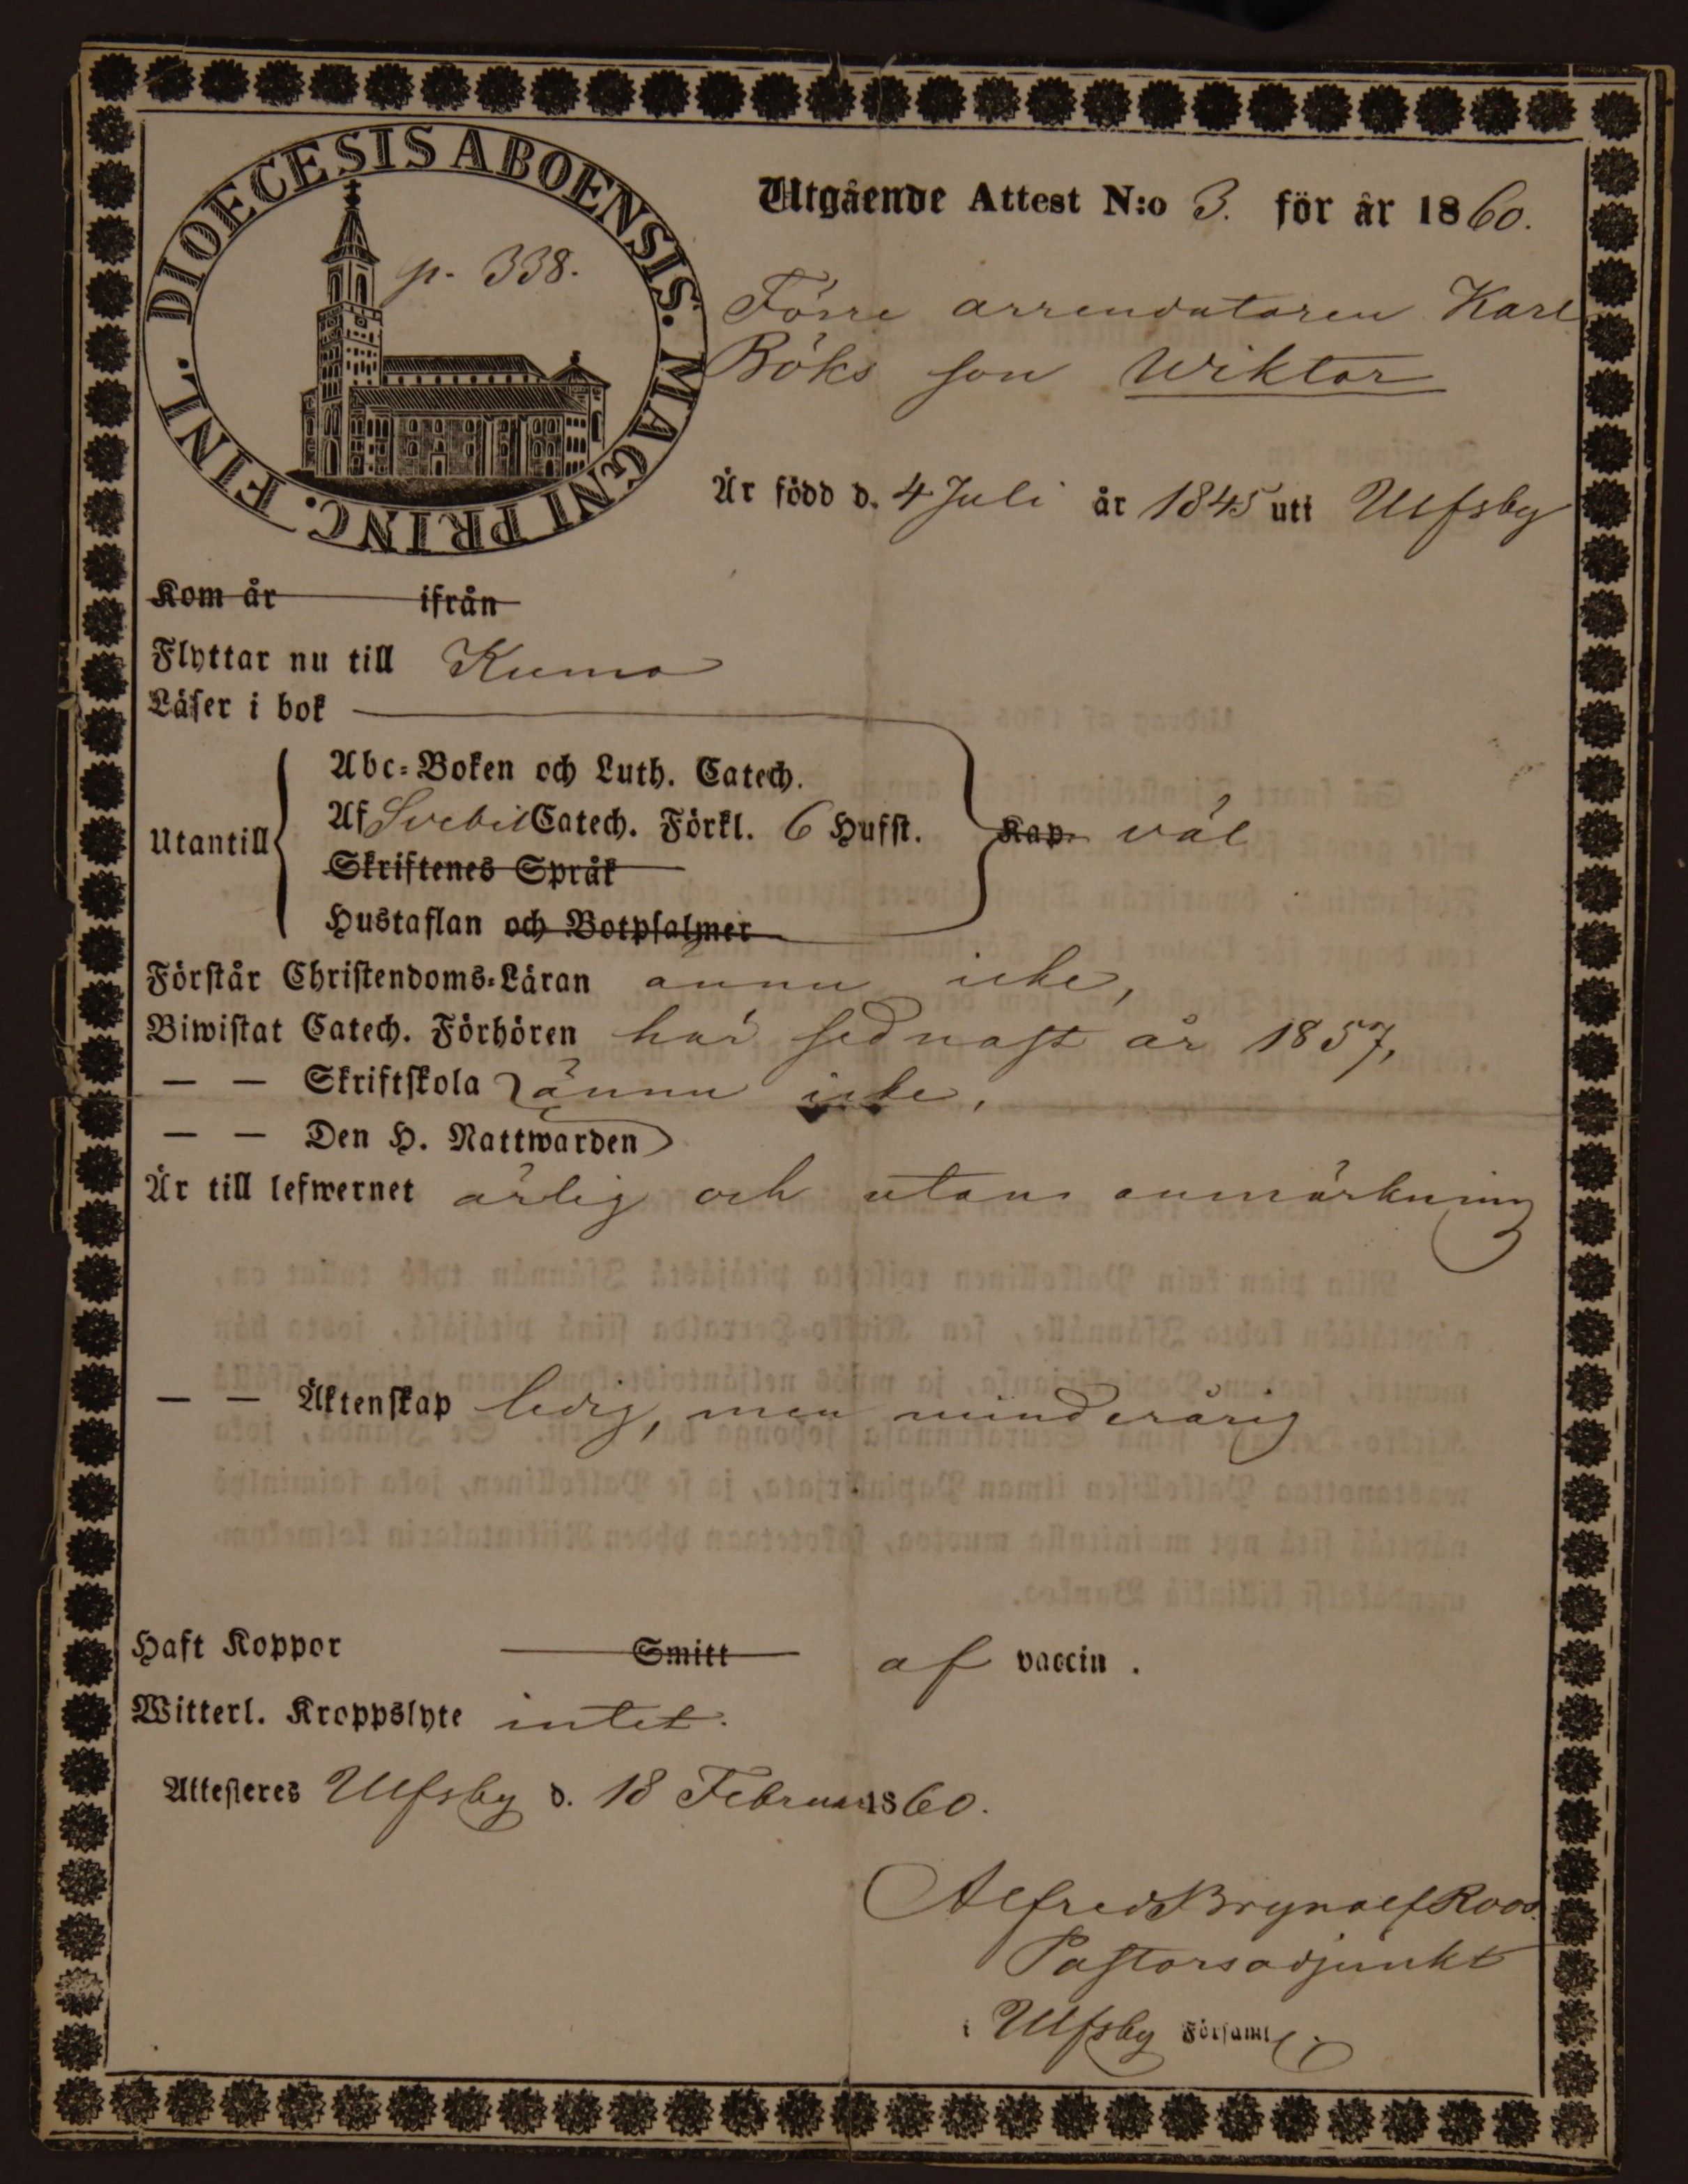 DIOECESIS ABOENSIS. MAGNI PRINC. FINL.
p. 338.
Utgående Attest N:o 3. för år 1860.
Förre arrendatoren Karl
Böks son Wiktor
Är född d. 4 Juli år 1845 uti Ulfsby
Kom år ifrån
Flyttar nu till Kumo
Läser i bok
Utantill
Abc-Boken och Luth. Catech.
Af Svebil Catech. Förkl. 6 Hufst.
Skriftenes Språk
Hustaflan och Botpsalmer
Kap. väl
Förstår Christendoms-Läran ännu icke,
Biwistat Catech. Förhören har sednast år 1857,
— — Skriftskola ännu icke,
— — Den H. Nattwarden
Är till lefwernet ärlig och utan anmärkning
— — Äktenskap ledig, men minderårig
Haft Koppor Smitt af vaccin.
Witterl. Kroppslyte intet.
Attesteres Ulfsby d. 18 Februari 1860.
Alfred Brynolf Roos.
Pastorsadjunkt
i Ulfsby Församl.